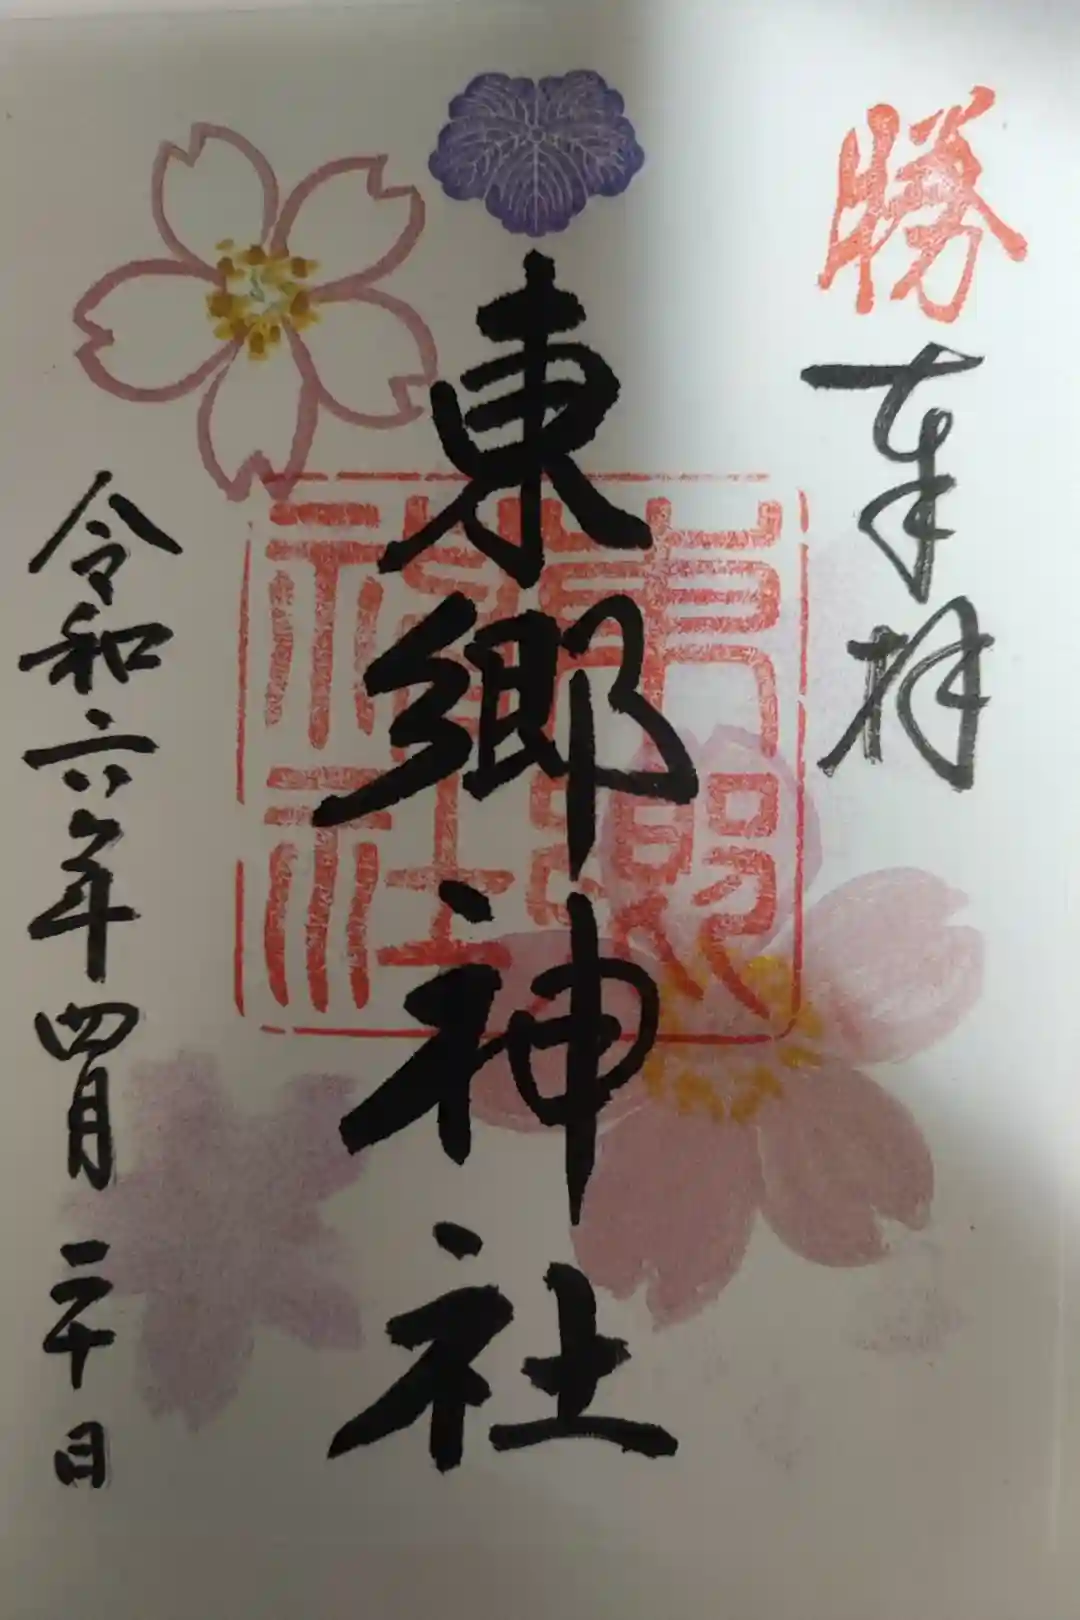 勝
奉拝
東郷神社
東郷神社
令和六年四月二十日